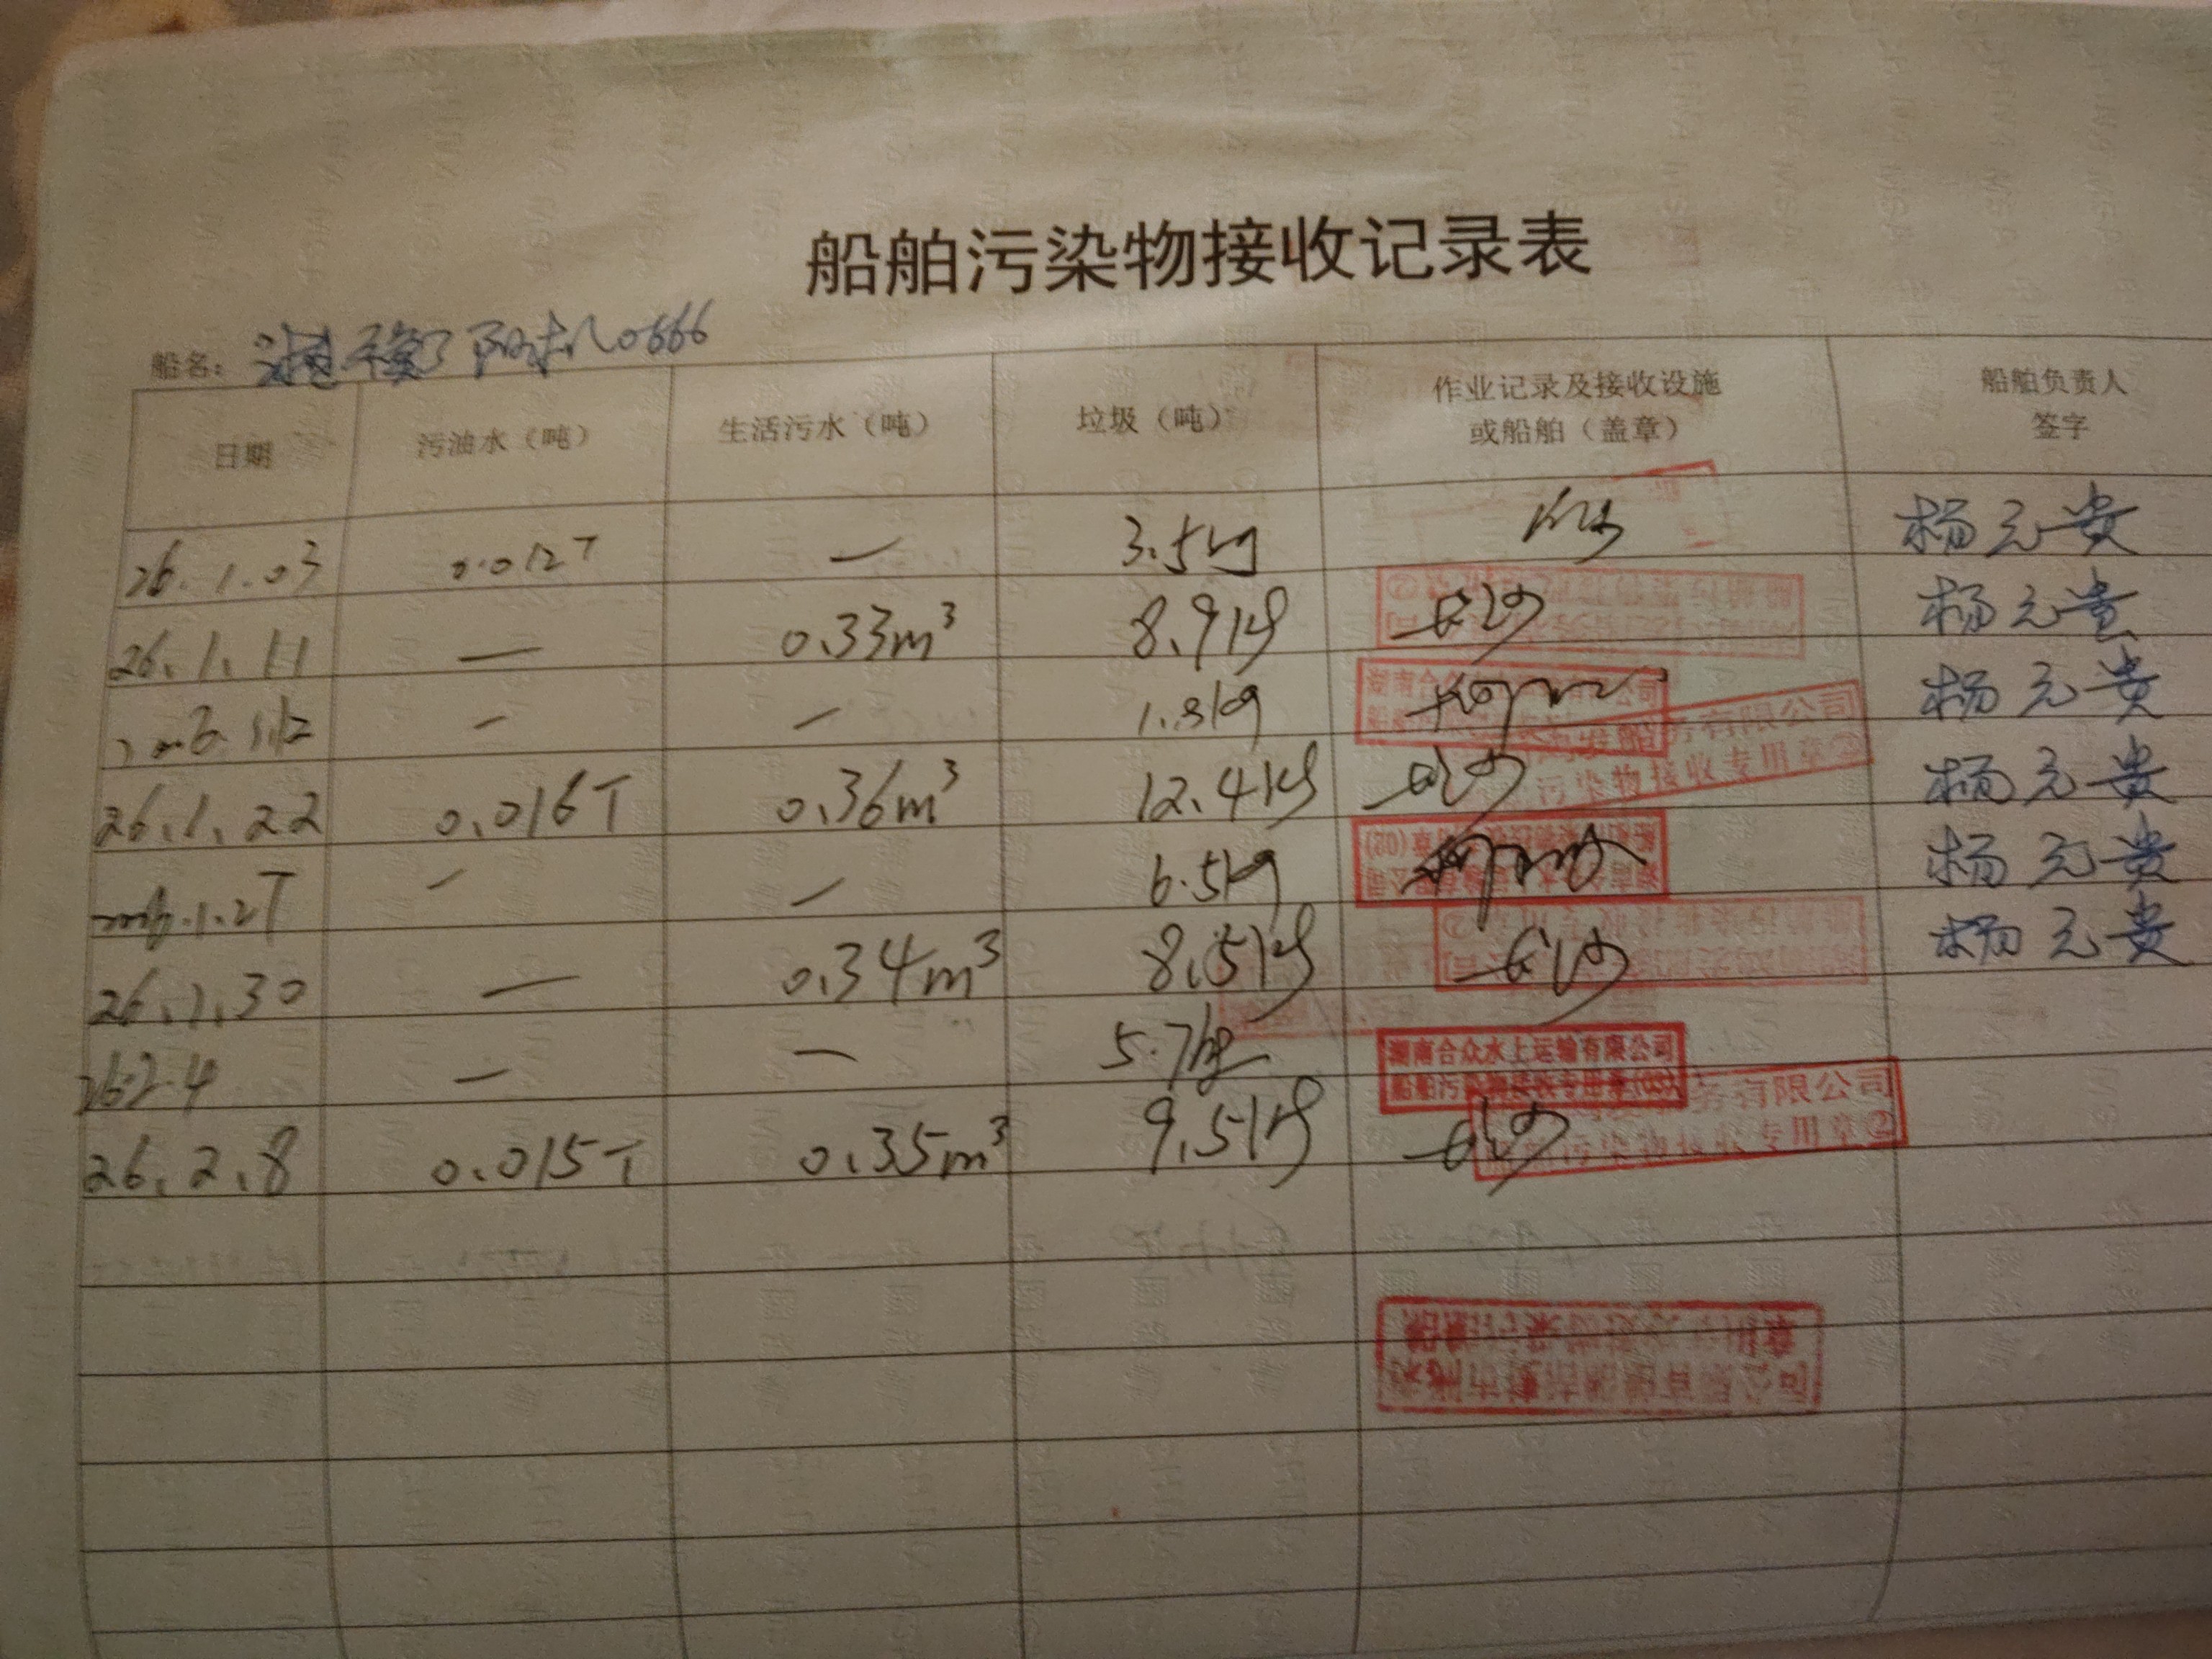 船舶污染物接收记录表
船名: 湘衡阳机0666
日期 污油水（吨） 生活污水（吨） 垃圾（吨） 作业记录及接收设施或船舶（盖章） 船舶负责人签字
26.1.03 0.012T — 3.5kg 杨元贵
26.1.11 — 0.33m³ 8.9kg 杨元贵
— — 1.8kg 杨元贵
26.1.22 0.016T 0.36m³ 12.4kg 杨元贵
— — 6.5kg 杨元贵
26.1.30 — 0.34m³ 8.5kg 杨元贵
26.2.4 — — 5.7kg
湖南合众水上运输有限公司
船舶污染物接收专用章
26.2.8 0.015T 0.35m³ 9.5kg
务有限公司
污染物接收专用章②